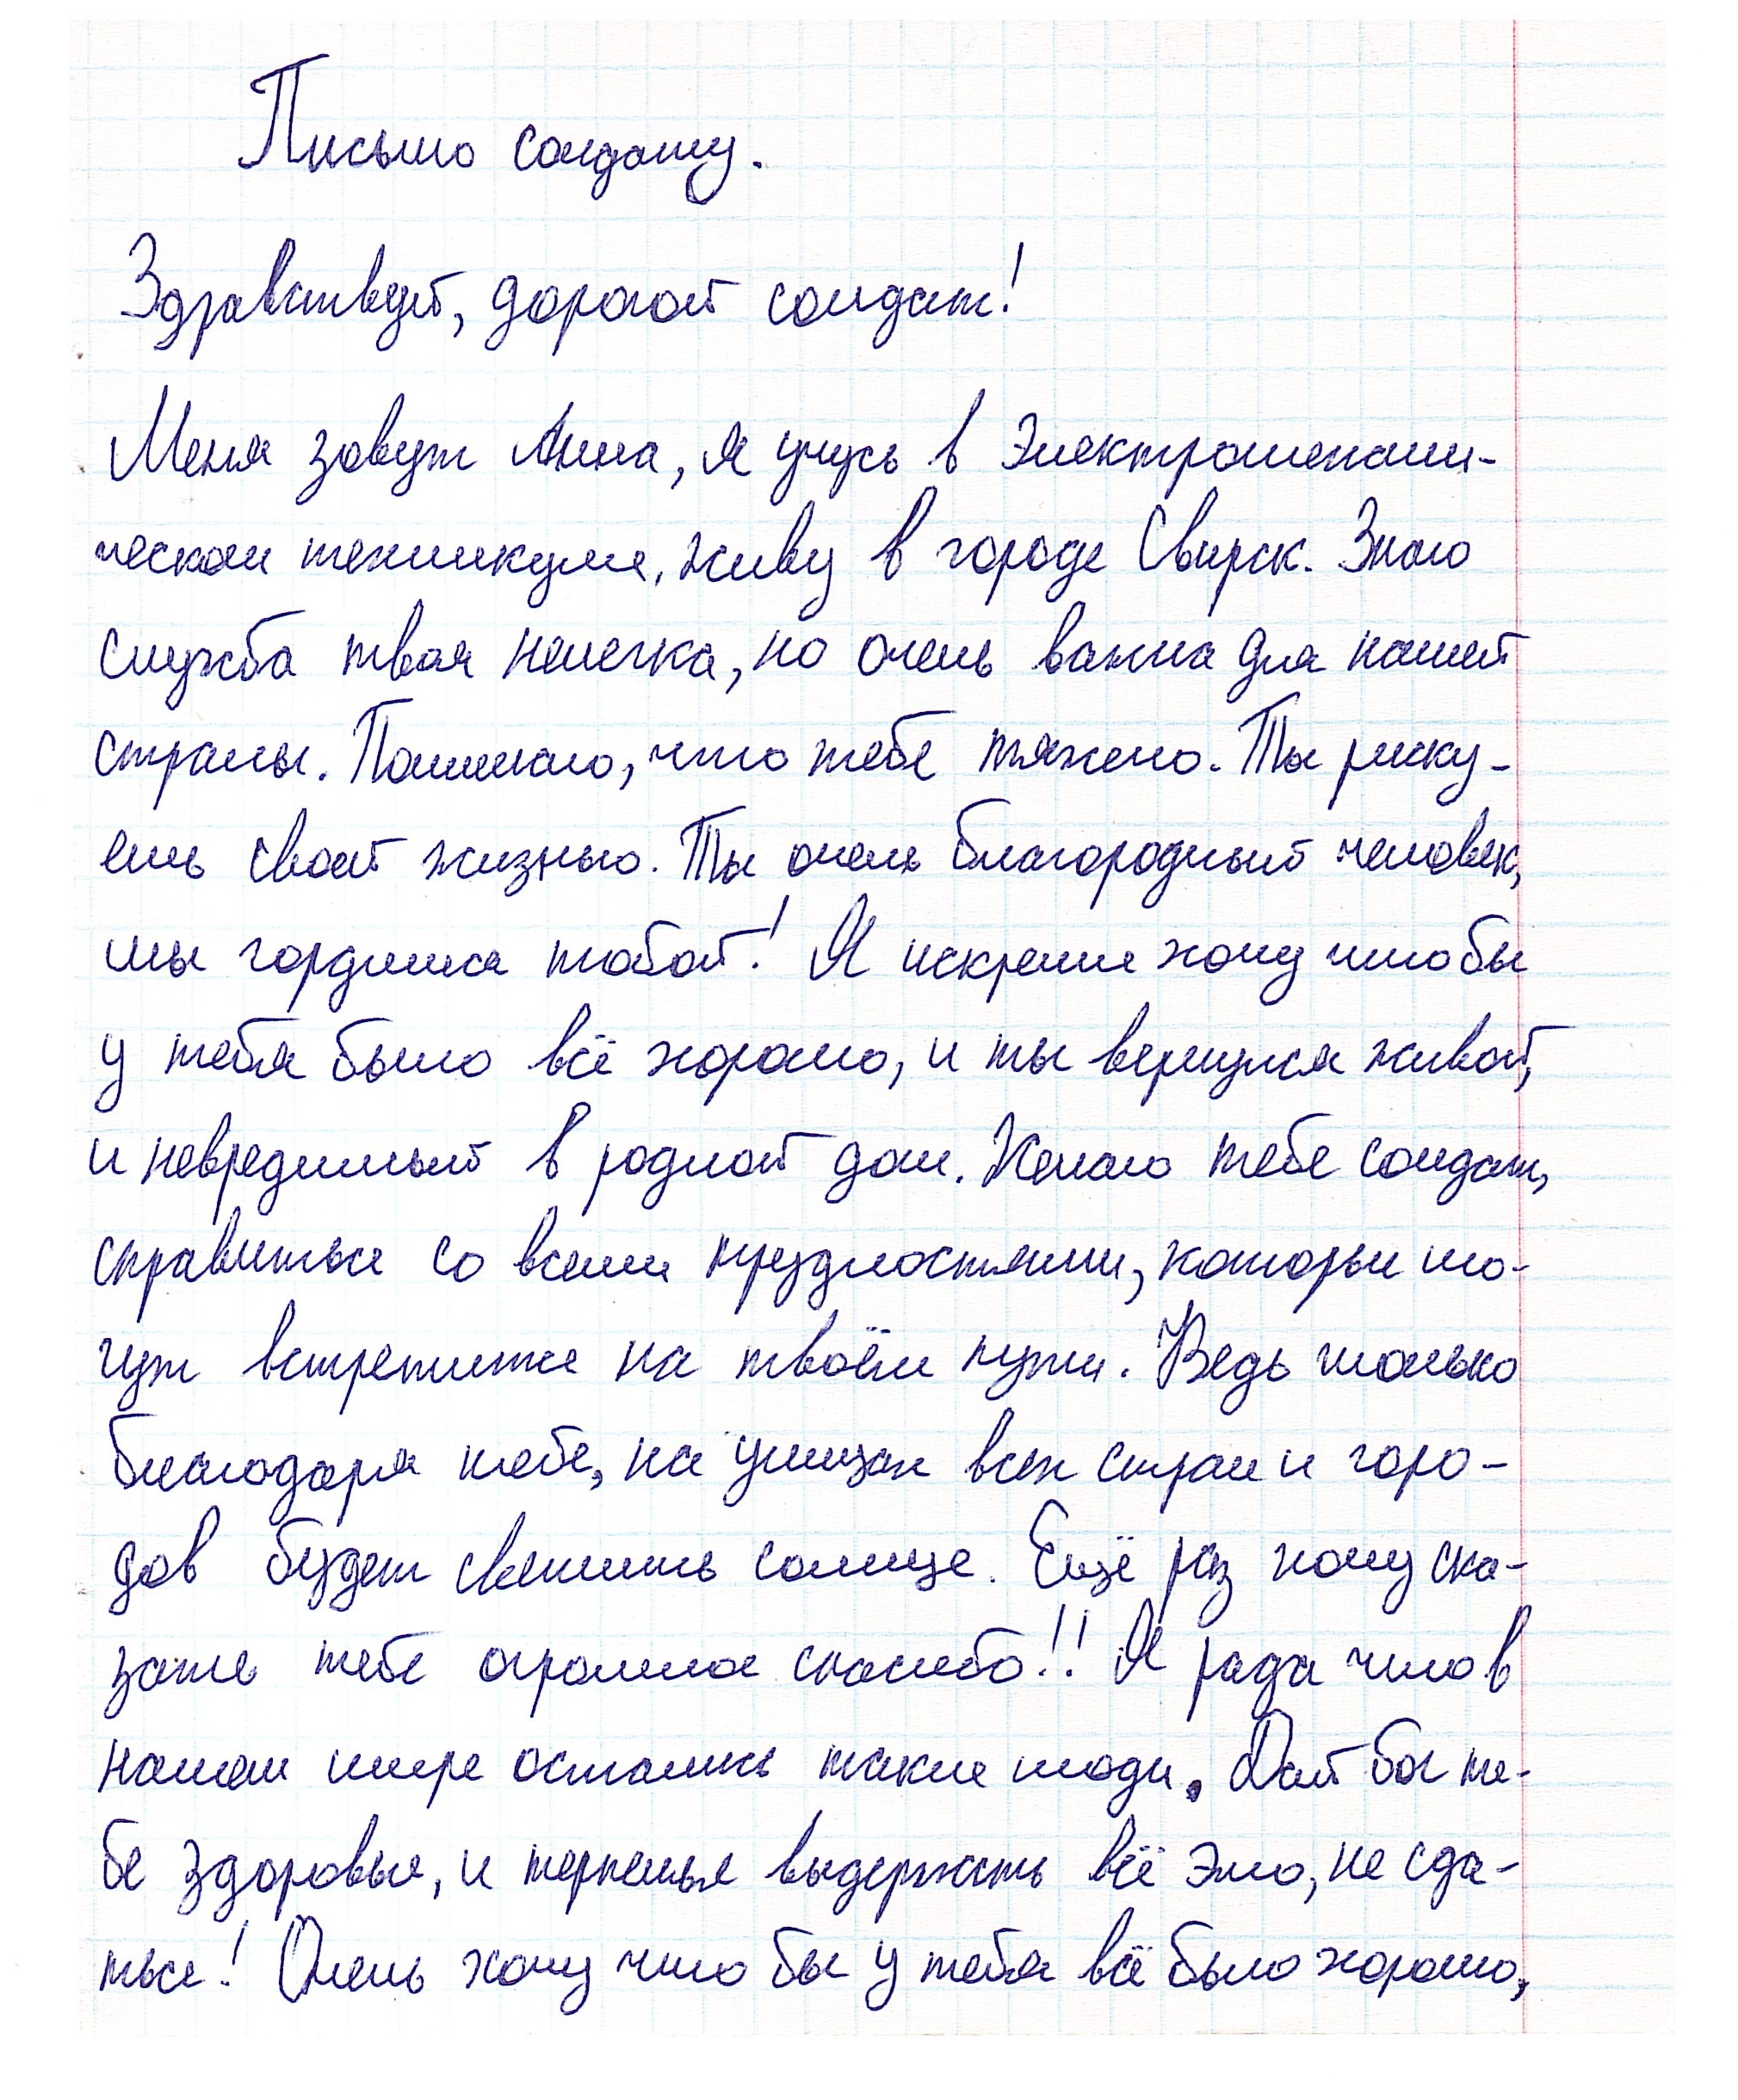 Письмо солдату.
Здравствуй, дорогой солдат!
Меня зовут Анна, я учусь в Электромехани-
ческом техникуме, живу в городе Свирск. Знаю
служба твоя нелегка, но очень важна для нашей
страны. Понимаю, что тебе тяжело. Ты риску-
ешь своей жизнью. Ты очень благородный человек,
мы гордимся тобой! Я искренне хочу что бы
у тебя было всё хорошо, и ты вернулся живой,
и невредимый в родной дом. Желаю тебе солдат,
справиться со всеми трудностями, которые мо-
гут встретится на твоём пути. Ведь только
благодаря тебе, на улицах всех стран и горо-
дов будет светить солнце. Ещё раз хочу ска-
зать тебе огромное спасибо!! Я рада что в
нашем мире остались такие люди. Дай бог те-
бе здоровье, и терпенья выдержать всё это, не сда-
ться! Очень хочу что бы у тебя всё было хорошо,